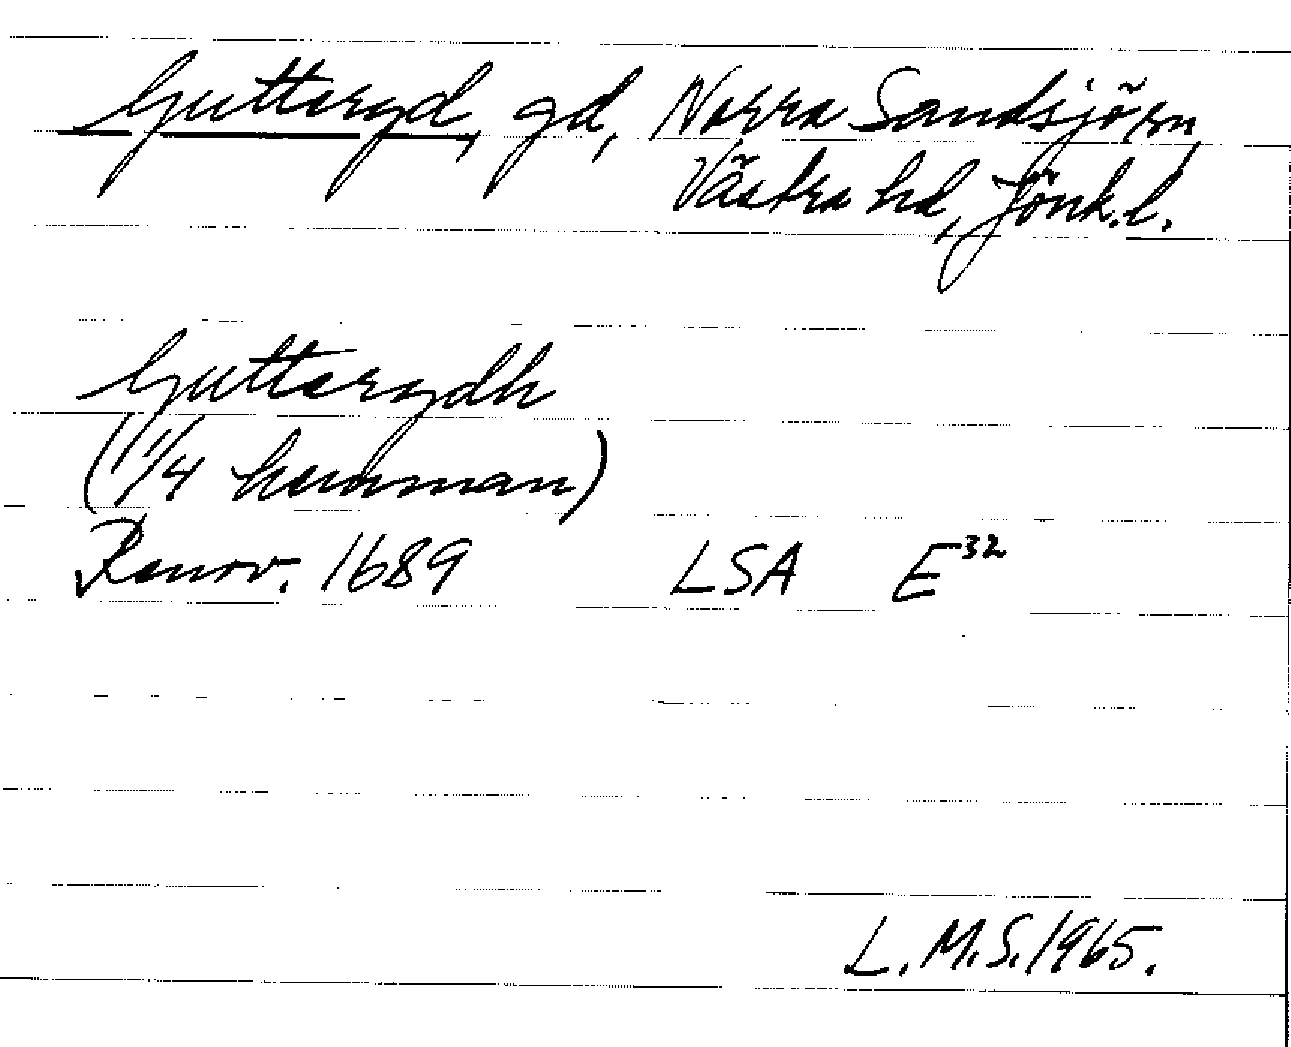 Gutteryd, gd, Norra Sandsjö sn,
Västra hd, Jönk. l.
Gutterydh
(1/4 hemman)
Renov. 1689 LSA E³²
L.M.S. 1965.